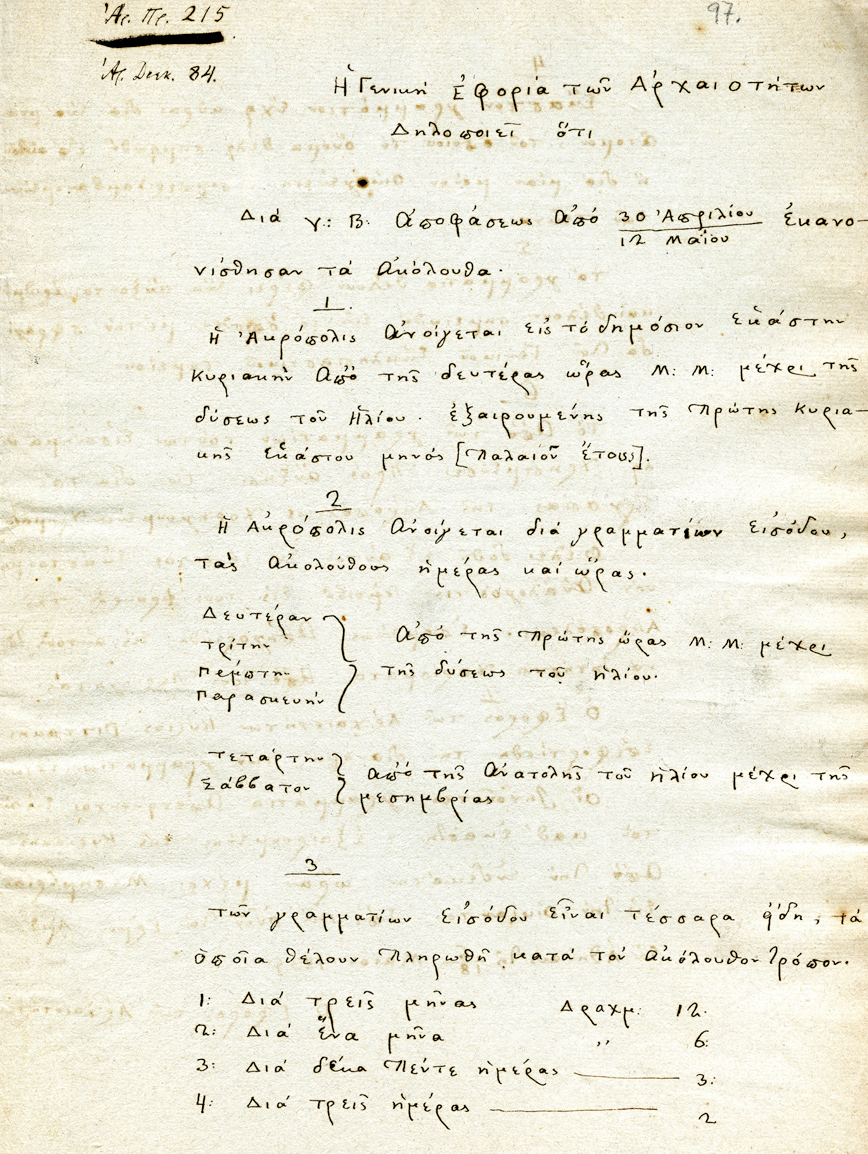 Ἀρ. Πρ. 215
97.
Ἀρ. Διεκ. 84.
Ἡ Γενική Ἐφορία τῶν Ἀρχαιοτήτων
Δηλοποιεῖ ὅτι
Διά γ: Β: ἀποφάσεως ἀπό 30 Ἀπριλίου / 12 Μαΐου ἐκανο-
νίσθησαν τά ἀκόλουθα.
1.
Ἡ Ἀκρόπολις ἀνοίγεται εἰς τό δημόσιον ἑκάστην
κυριακήν ἀπό τῆς δευτέρας ὥρας Μ: Μ: μέχρι τῆς
δύσεως τοῦ Ἡλίου. ἐξαιρουμένης τῆς Πρώτης Κυρια-
κῆς ἑκάστου μηνός [Παλαιοῦ Ἔτους].
2
Ἡ Ἀκρόπολις ἀνοίγεται διά γραμματίων εἰσόδου,
τας ἀκολούθους ἡμέρας καί ὥρας.
Δευτέραν
τρίτην
πέμπτην
παρασκευήν
ἀπό τῆς Πρώτης ὥρας Μ: Μ: μέχρι
τῆς δύσεως τοῦ ἡλίου.
τετάρτην
Σάββατον
ἀπό τῆς ἀνατολῆς τοῦ ἡλίου μέχρι τῆς
μεσημβρίας
3
τῶν γραμματίων εἰσόδου εἶναι τέσσαρα ἤδη, τά
ὁποῖα θέλουν Πληρωθῆ κατά τόν ἀκόλουθον Τρόπον.
1: Διά τρεῖς μῆνας Δραχμ: 12.
2: Διά ἕνα μῆνα ,, 6:
3: Διά δέκα Πέντε ἡμέρας — 3:
4: Διά τρεῖς ἡμέρας — 2